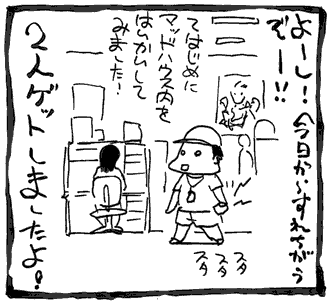 よーし!今日からすれちがう
ぞー!!
てはじめに
マッドハウス内を
はいかいして
みました!
スタ
スタ
スタ
2人ゲットしましたよ!